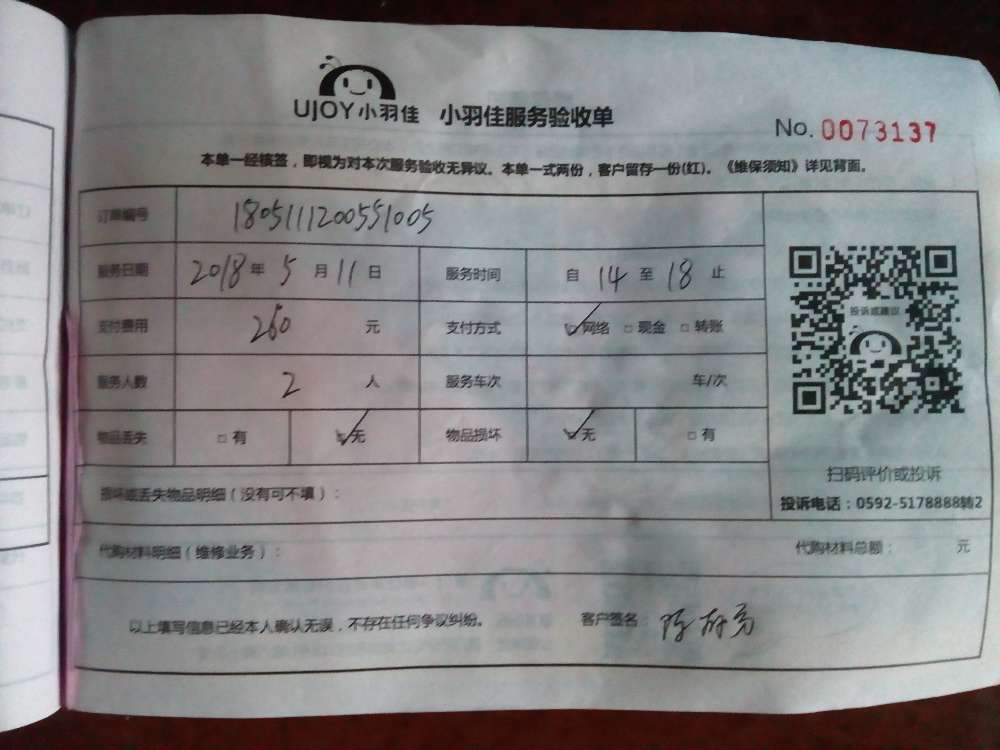 UJOY小羽佳 小羽佳服务验收单
No. 0073137
本单一经核签，即视为对本次服务验收无异议。本单一式两份，客户留存一份(红)。《维保须知》详见背面。
订单编号 1805111200551005
服务日期 2018年5月11日 服务时间 自14至18止
支付费用 260元 支付方式 ☑网络 □现金 □转账
投诉或建议
服务人数 2人 服务车次 车/次
物品丢失 □有 ☑无 物品损坏 ☑无 □有
扫码评价或投诉
损坏或丢失物品明细（没有可不填）：
投诉电话：0592-5178888转2
代购材料明细（维修业务）： 代购材料总额： 元
以上填写信息已经本人确认无误，不存在任何争议纠纷。 客户签名：陈